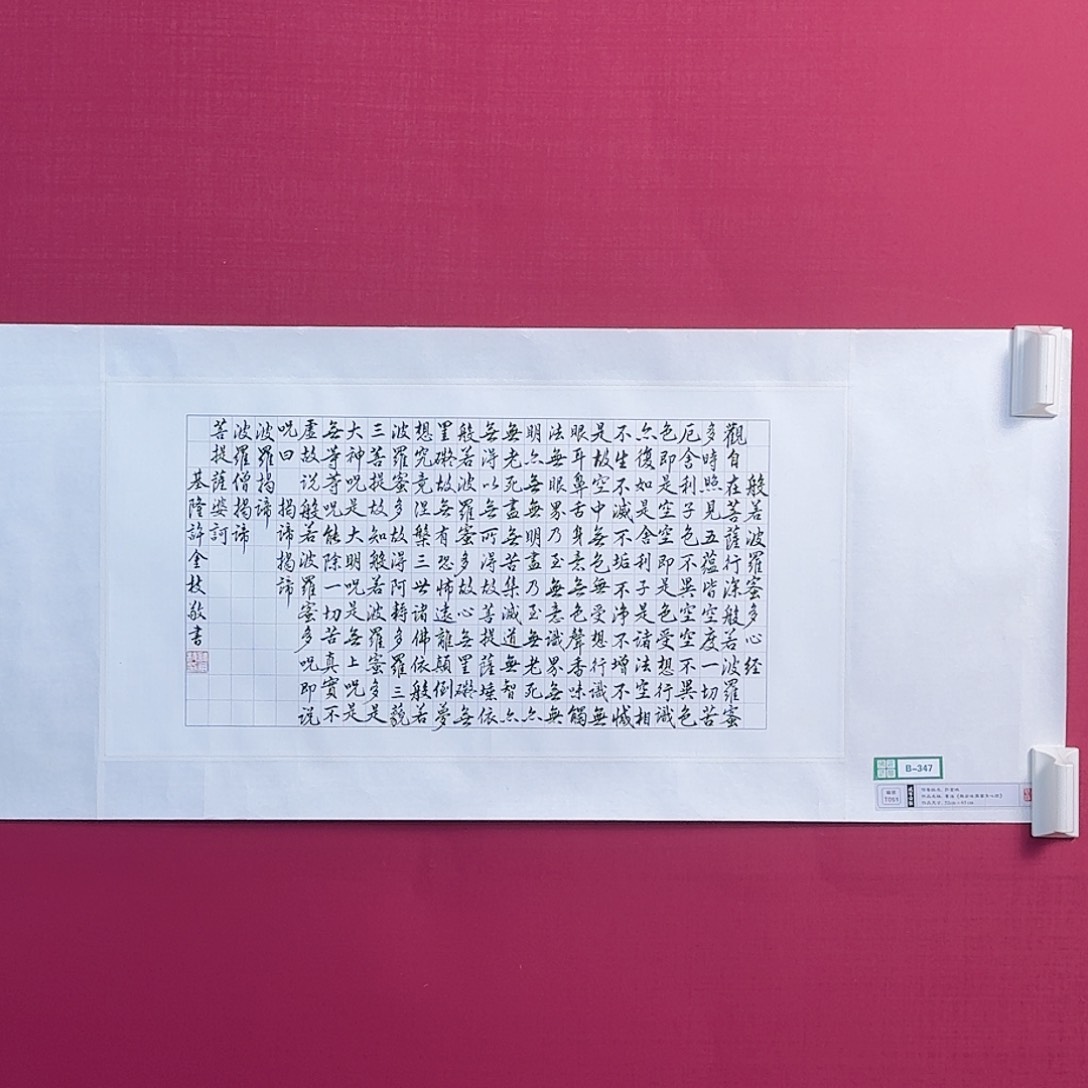 般若波羅蜜多心经
觀自在菩薩行深般若波羅蜜
多時照見五蕴皆空度一切苦
厄舍利子色不異空空不異色
色即是空空即是色受想行識
亦復如是舍利子是諸法空相
不生不滅不垢不净不增不减
是故空中無色無受想行識無
眼耳鼻舌身意無色聲香味觸
法無眼界乃至無意識界無無
明亦無無明盡乃至無老死亦
無老死盡無苦集滅道無智亦
無得以無所得故菩提薩埵依
般若波羅蜜多故心無罣礙無
罣礙故無有恐怖遠離顛倒夢
想究竟涅槃三世諸佛依般若
波羅蜜多故得阿耨多羅三藐
三菩提故知般若波羅蜜多是
大神咒是大明咒是無上咒是
無等等咒能除一切苦真實不
虚故说般若波羅蜜多咒即说
咒曰 揭諦揭諦
波羅揭諦
波羅僧揭諦
菩提薩婆訶
基隆許金枝敬書
B-347